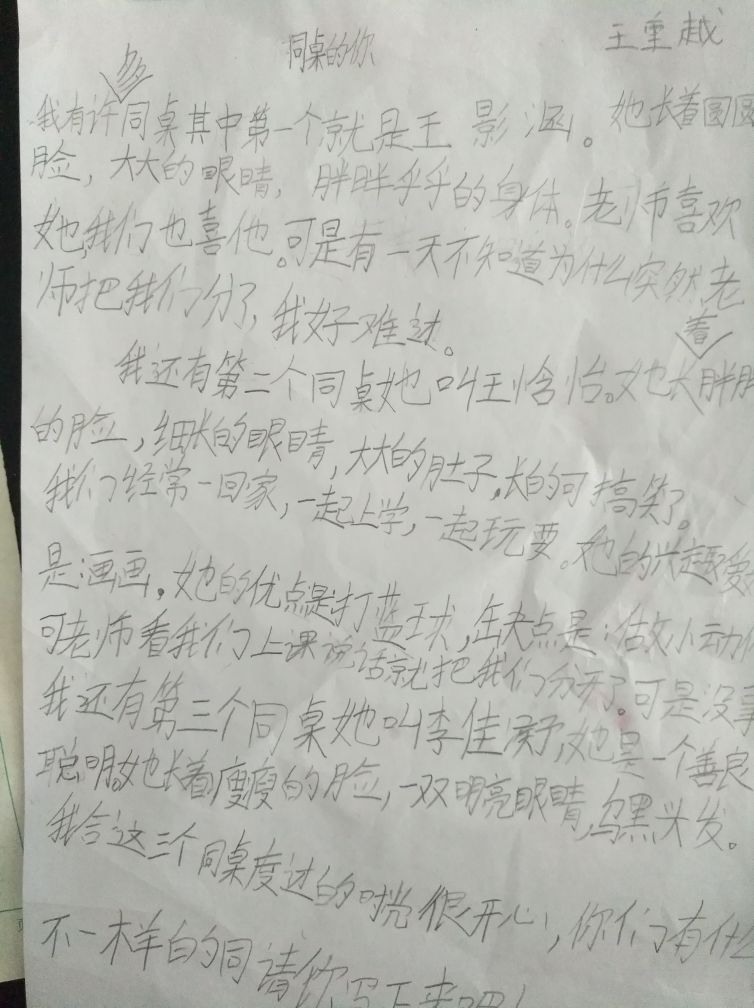 同桌的你
王重越
我有许多同桌其中第一个就是王影涵。她长着圆圆
脸，大大的眼睛，胖胖乎乎的身体。老师喜欢
她，我们也喜他。可是有一天不知道为什么突然老
师把我们分了，我好难过。
我还有第二个同桌她叫王怡。她长着胖胖
的脸，细长的眼睛，大大的肚子，长的可搞笑了。
我们经常一回家，一起上学，一起玩要。她的兴趣爱
是画画。她的优点是打蓝球，缺点是：做小动作
可老师看我们上课说话就把我们分开了。可是没事
我还有第三个同桌她叫李佳，她是一个善良
聪明。她长着瘦瘦的脸，一双明亮眼睛，乌黑头发。
我合这三个同桌度过的时光很开心，你们有什么
不一样的同请你写下来吧！